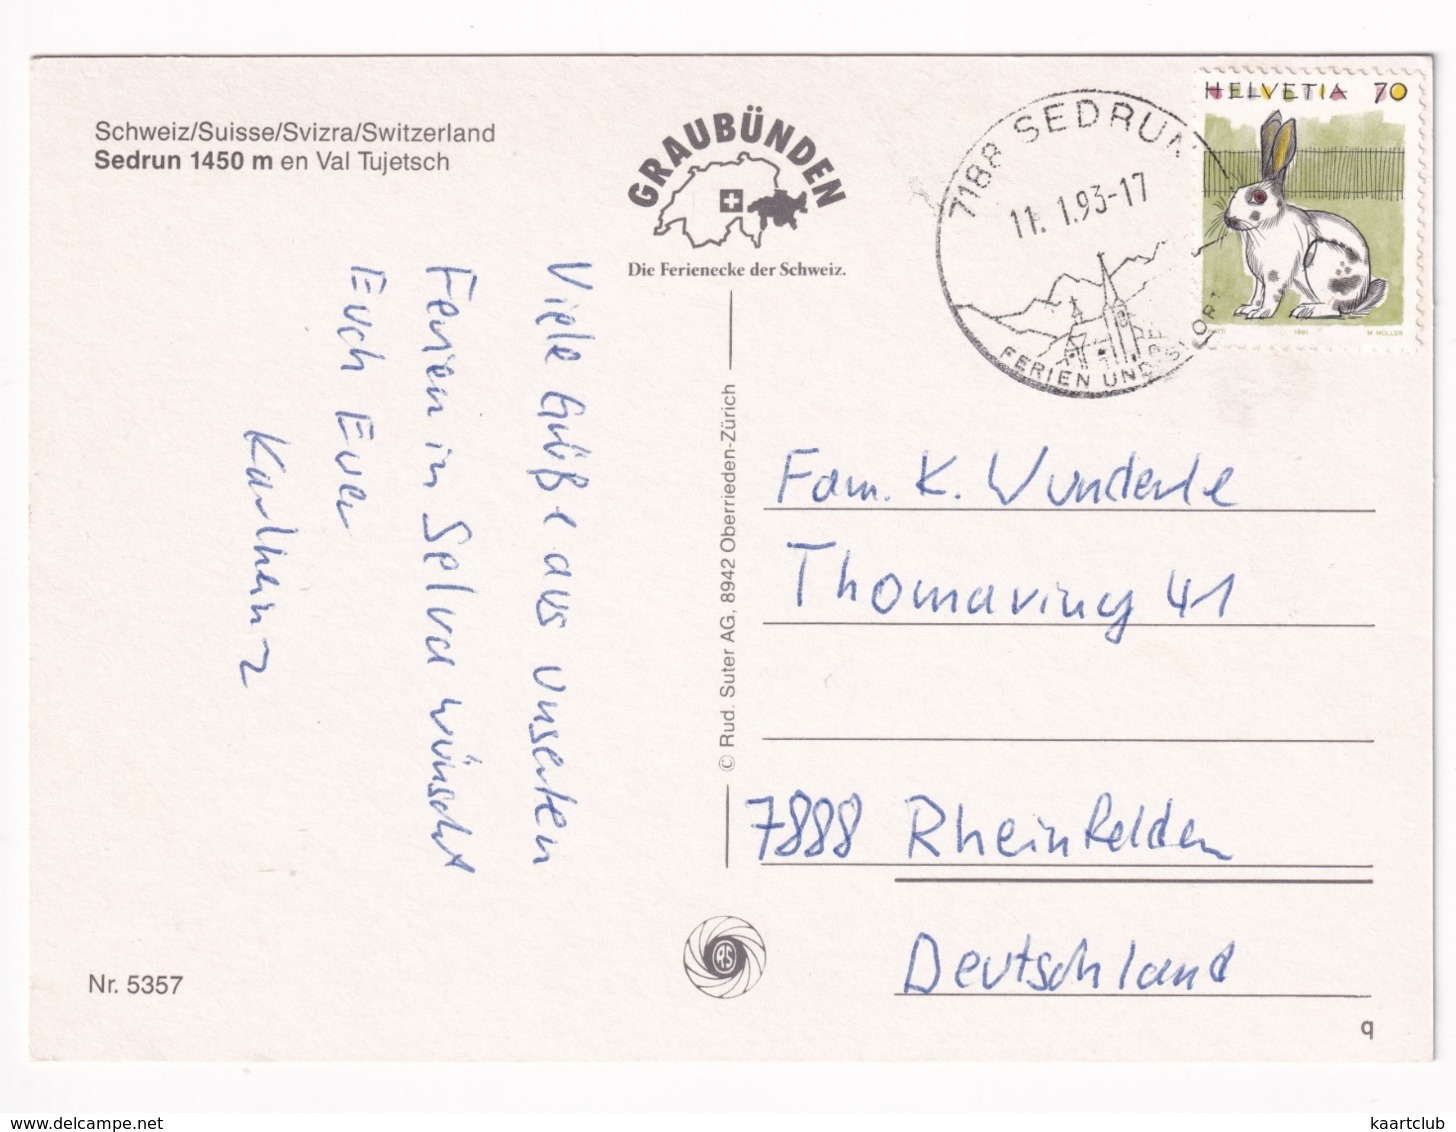 Schweiz/Suisse/Svizra/Switzerland
Sedrun 1450 m en Val Tujetsch
GRAUBÜNDEN
Die Ferienecke der Schweiz.
7188 SEDRUN
11. 1.93-17
FERIEN UND
HELVETIA 70
1991 M. MÜLLER
Viele Grüße aus unseren
Ferien in Selva wünscht
Euch Euer
Karlheinz
© Rud. Suter AG, 8942 Oberrieden-Zürich
Fam. K. Wunderle
Thomaring 41
7888 Rheinfelden
Deutschland
RS
Nr. 5357
q
delcampe.net
kaartclub